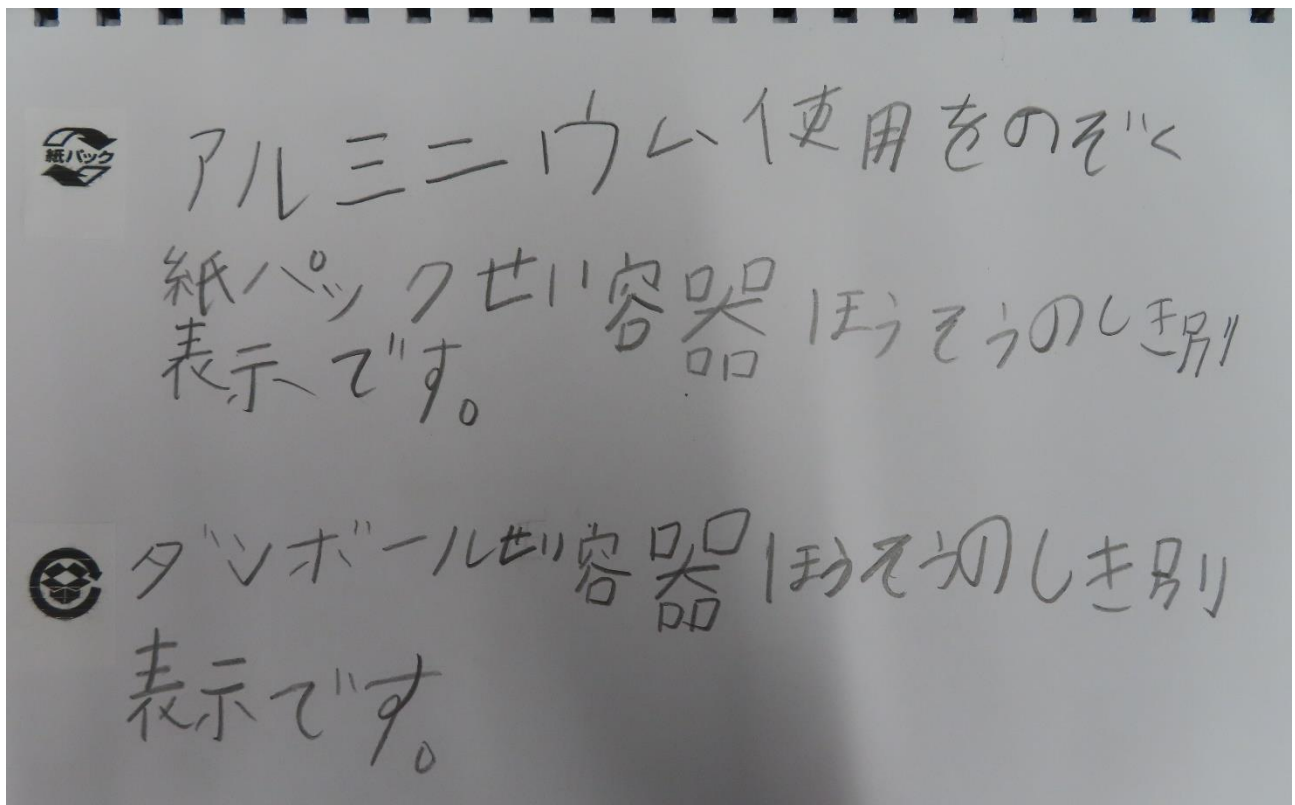 紙パック
アルミニウム使用をのぞく
紙パックせい容器ほうそうのしき別
表示です。
ダンボールせい容器ほうそうのしき別
表示です。